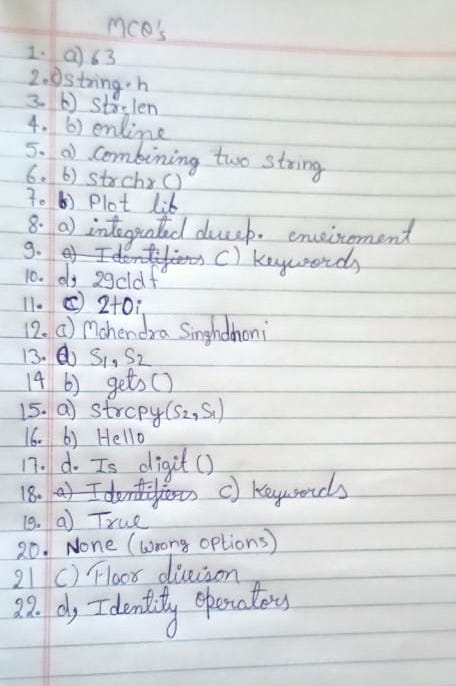 MCQ's
1. a) 63
2. c) string.h
3. b) strlen
4. b) online
5. a) combining two string
6. b) strchr()
7. b) Plot lib
8. a) integrated deveep. enveiroment
9. a) Identifiers c) keywords
10. d, 29cldf
11. c) 2+0i
12. a) Mahendra Singhdhoni
13. a) S1, S2
14 b) gets()
15. a) strcpy(S2, S1)
16. b) Hello
17. d. Is digit()
18. a) Identifiers c) keywords
19. a) True
20. None (wrong options)
21 c) Floor divison
22. d, Identity operators